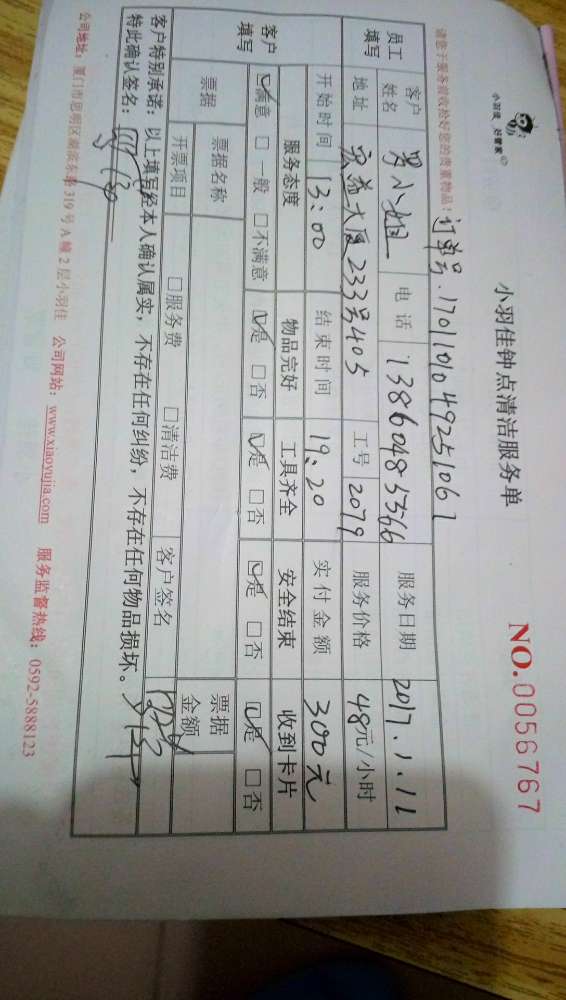 小羽佳 好管家
小羽佳钟点清洁服务单
NO.0056767
请您于服务前收拾好您的贵重物品!
订单号:1701101049251067
员工填写 客户姓名 罗小姐 电话 13860485366 服务日期 2017.1.11
地址 宏益大厦233号405 工号 2079 服务价格 48元/小时
开始时间 13:00 结束时间 19:20 实付金额 300元
客户填写 服务态度 物品完好 工具齐全 安全结束 收到卡片
☑满意 □一般 □不满意 ☑是 □否 ☑是 □否 ☑是 □否 ☑是 □否
票据 票据名称 票据金额
开票项目 □服务费 □清洁费 客户签名
客户特别承诺:以上填写经本人确认属实,不存在任何纠纷,不存在任何物品损坏。
特此确认签名:
公司地址:厦门市思明区 319号A幢2层小羽佳 公司网站:www.xiaoyujia.com 服务监督热线:0592-5888123